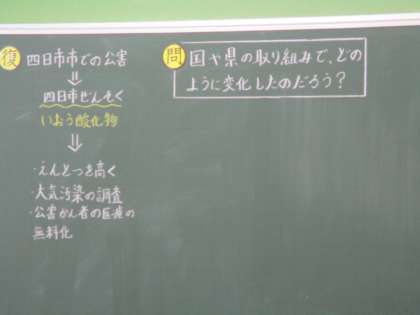 復 四日市市での公害
⇓
四日市ぜんそく
いおう酸化物
⇓
・えんとつを高く
・大気汚染の調査
・公害かん者の医療の
無料化
問 国や県の取り組みで、どの
ように変化したのだろう?